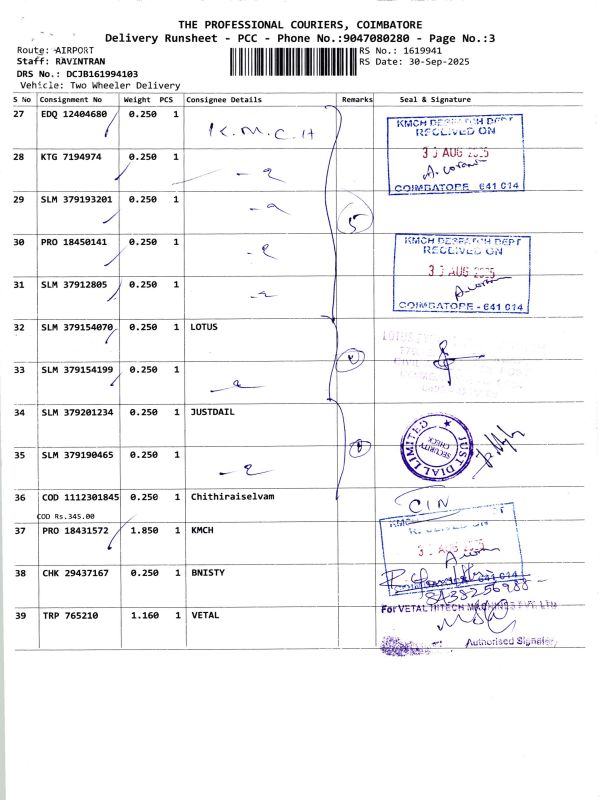 THE PROFESSIONAL COURIERS, COIMBATORE
Delivery Runsheet - PCC - Phone No.:9047080280 - Page No.:3
Route: AIRPORT
RS No.: 1619941
Staff: RAVINTRAN
RS Date: 30-Sep-2025
DRS No.: DCJB161994103
Vehicle: Two Wheeler Delivery
S No Consignment No Weight PCS Consignee Details Remarks Seal & Signature
27 EDQ 12404680 0.250 1 K.M.C.H
KMCH DESPATCH DEPT
RECEIVED ON
30 AUG 2025
COIMBATORE - 641 014
28 KTG 7194974 0.250 1
29 SLM 379193201 0.250 1
5
30 PRO 18450141 0.250 1
KMCH DESPATCH DEPT
RECEIVED ON
30 AUG 2025
COIMBATORE - 641 014
31 SLM 37912805 0.250 1
32 SLM 379154070 0.250 1 LOTUS
LOTUS
33 SLM 379154199 0.250 1
34 SLM 379201234 0.250 1 JUSTDAIL
JUST DIAL LIMITED
SECURITY CHECK
35 SLM 379190465 0.250 1
36 COD 1112301845 0.250 1 Chithiraiselvam
COD Rs.345.00
CIN
37 PRO 18431572 1.850 1 KMCH
KMCH
RECEIVED ON
641 014
38 CHK 29437167 0.250 1 BNISTY
8438256988
39 TRP 765210 1.160 1 VETAL
For VETAL HITECH MACHINES PVT. LTD
Authorised Signatory